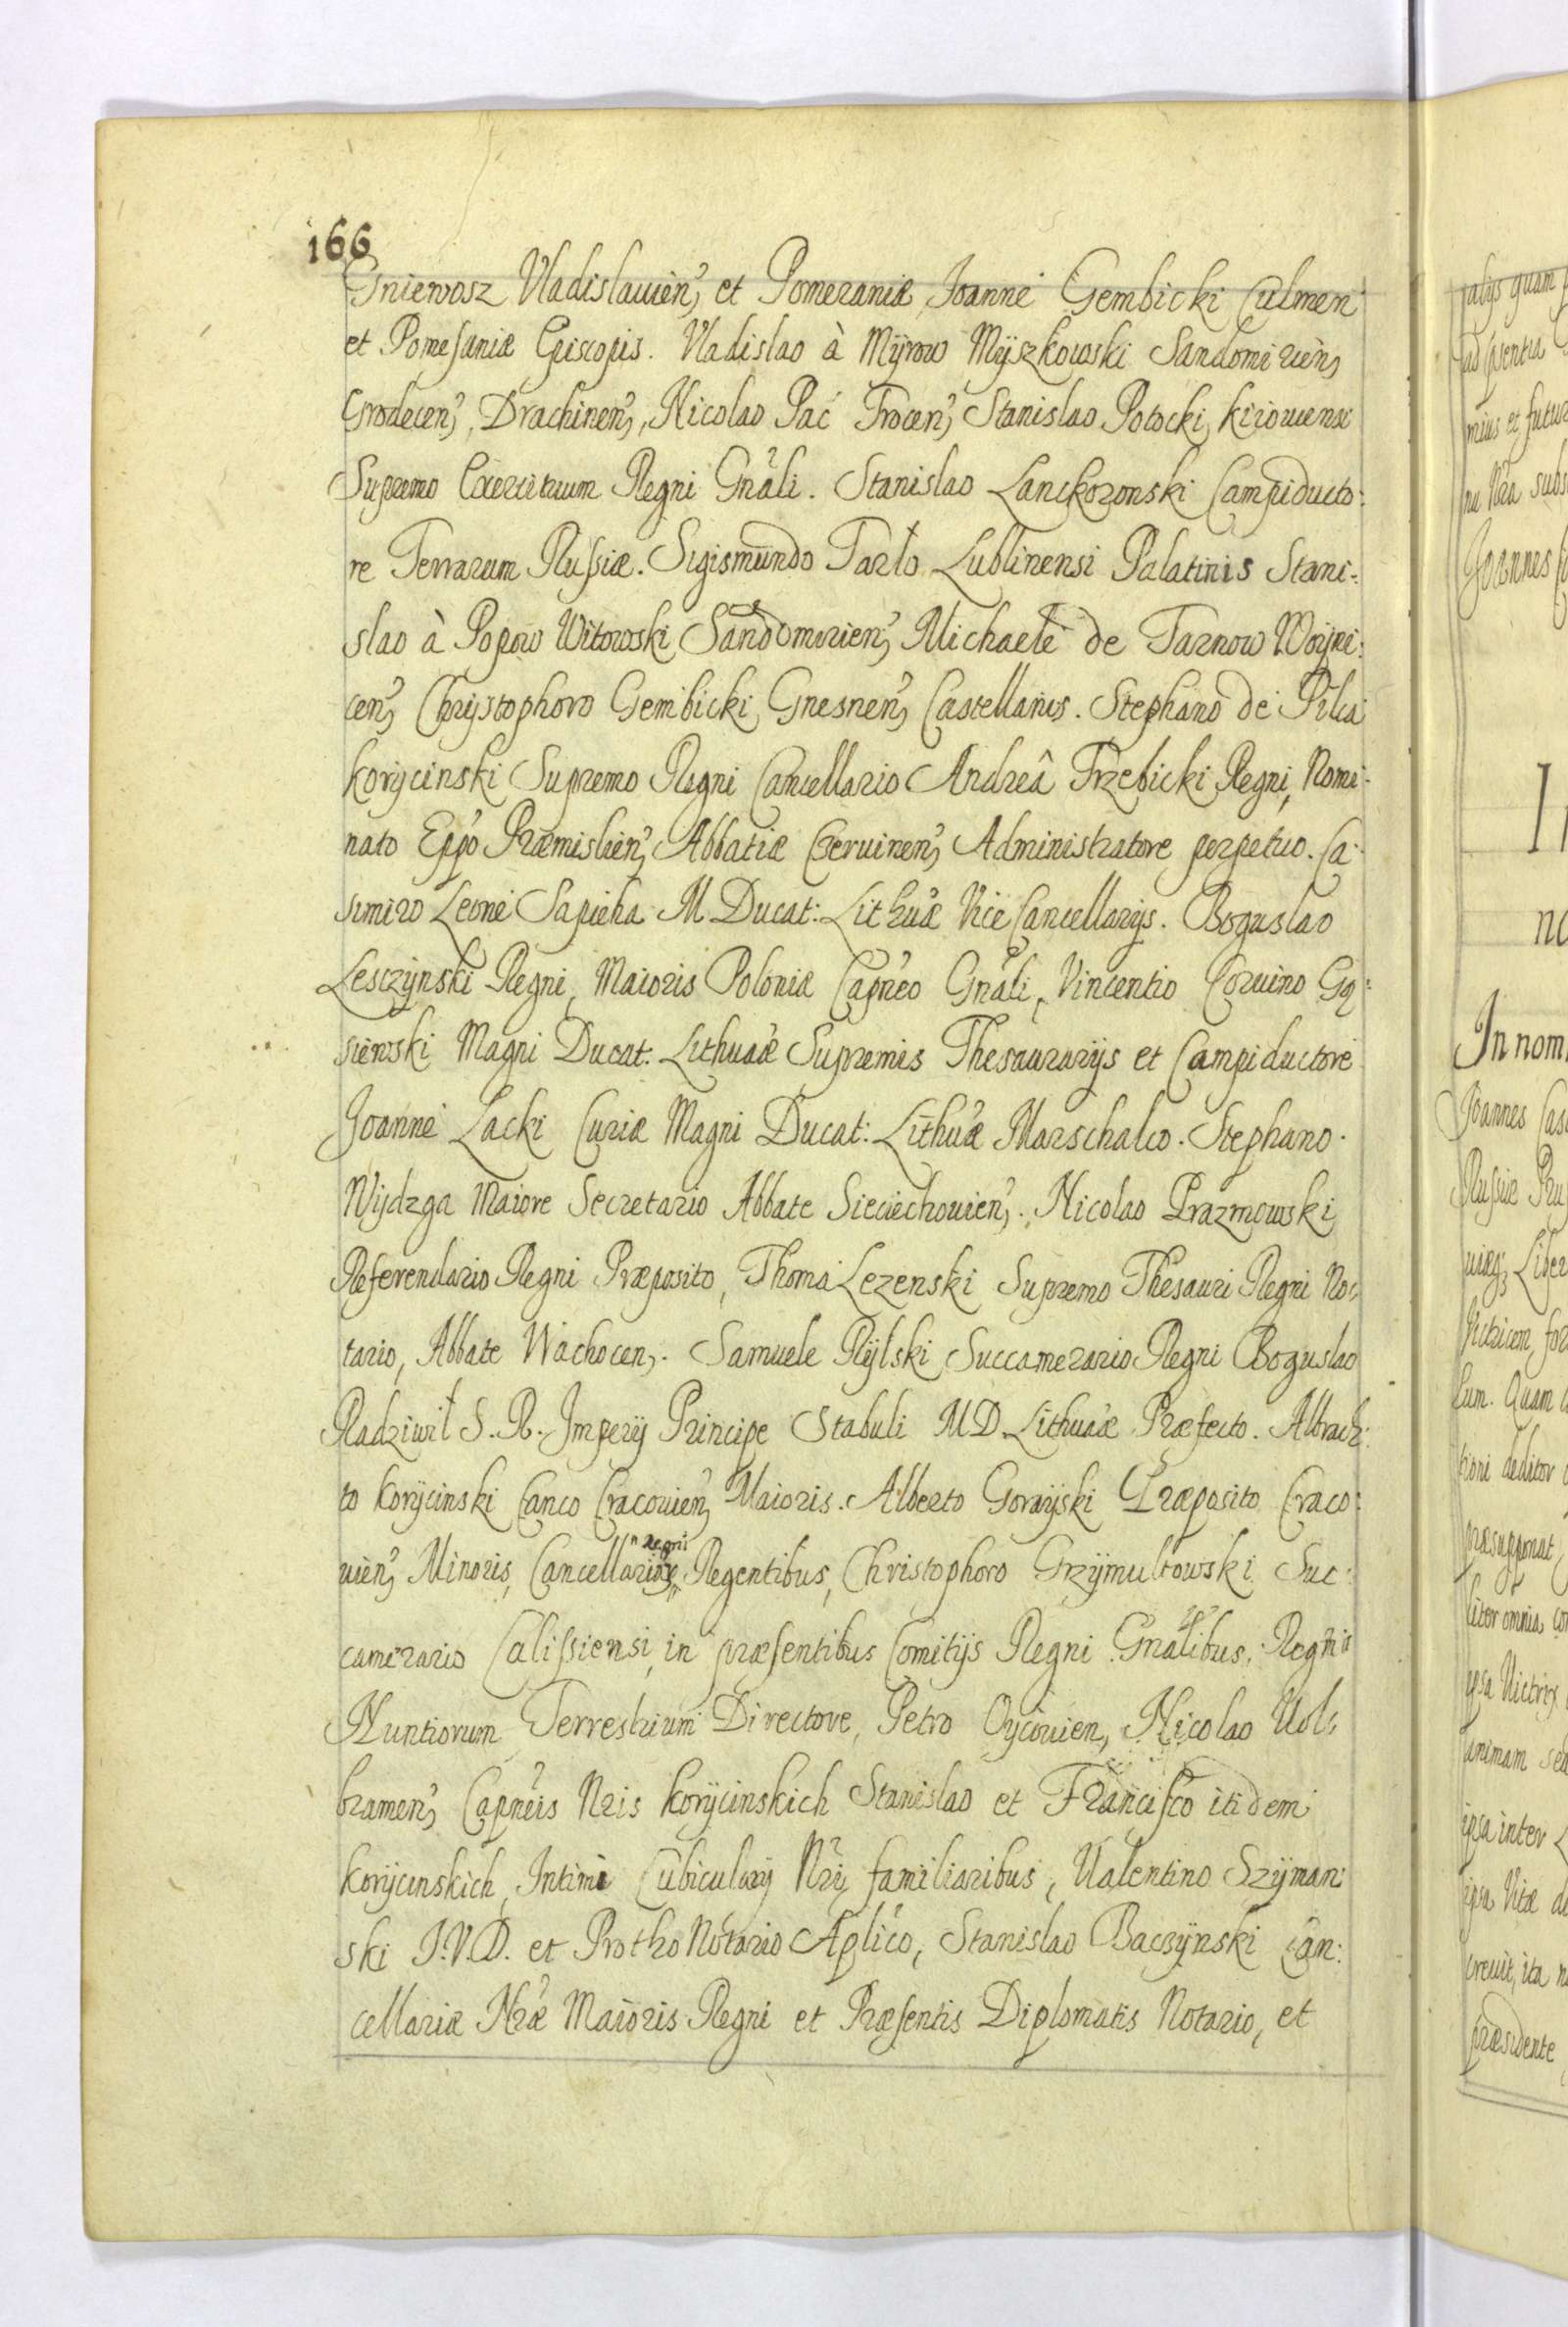 166
Gniewosz Vladislauien, et Pomeraniæ, Joanne Gembicki Culmen
et Pomesaniæ Episcopis. Vladislao à Mÿrow Mÿszkowski Sandomirien,
Grodecen, Drachinen, Nicolao Pac Trocen, Stanislao Potocki kiiouiensi
Supremo Exercituum Regni Gnāli. Stanislao Lanckoronski Campiducto:
re Terrarum Russiæ. Sigismundo Tarło Lublinensi Palatinis Stani:
slao à Popow Witowski, Sandomirien, Michaele de Tarnow Woÿni:
cen, Chrÿstophoro Gembicki, Gnesnen, Castellanis. Stephano de Pilca
korÿcinski Supremo Regni Cancellario Andreâ Trzebicki Regni, Nomi:
nato Eppo Præmislien, Abbatiæ Czeruinen, Administratore perpetuo. Ca:
simiro Leone Sapieha M Ducat: Lithuæ Vice Cancellarÿs. Boguslao
Lesczÿnski Regni, Maioris Poloniæ Capneo Gnāli, Vincentio Coruino Gą:
siewski Magni Ducat: Lithuaæ Supremis Thesaurarÿs et Campiductore
Joanne Lacki Curiæ Magni Ducat: Lithuæ Marschalco. Stephano.
Wÿdzga Maiore Secretario Abbate Sieciechouien,. Nicolao Prazmowski,
Referendario Regni Præposito, Thoma Lezenski Supremo Thesauri Regni No:
tario, Abbate Wachocen,. Samuele Rÿlski Succamerario Regni Boguslao
Radziwił S. R. Imperÿ Principe Stabuli M D. Lithuaæ Præfecto. Albrach:
to korÿcinski Canco Cracouien, Maioris. Alberto Goraÿski Præposito Craco:
uien, Minoris, Cancellariæ " Regni Regentibus, Christophoro Grzÿmułtowski Suc:
camerario Calissiensi, in præsentibus Comitÿs Regni Gnālibus, Regnis
Nuntiorum Terrestrium Directore, Petro Oÿcouien, Nicolao Uol:
bramen, Capneis Nris korÿcinskich Stanislao et Francisco itidem
korÿcinskich, Intimi Cubicularÿ Nri familiaribus, Ualentino Szÿman:
ski I.V.D. et ProthoNotario Aplico, Stanislao Baczÿnski Can:
cellariæ Nræ Maioris Regni et Præsentis Diplomatis Notario, et
In nom
Joannes